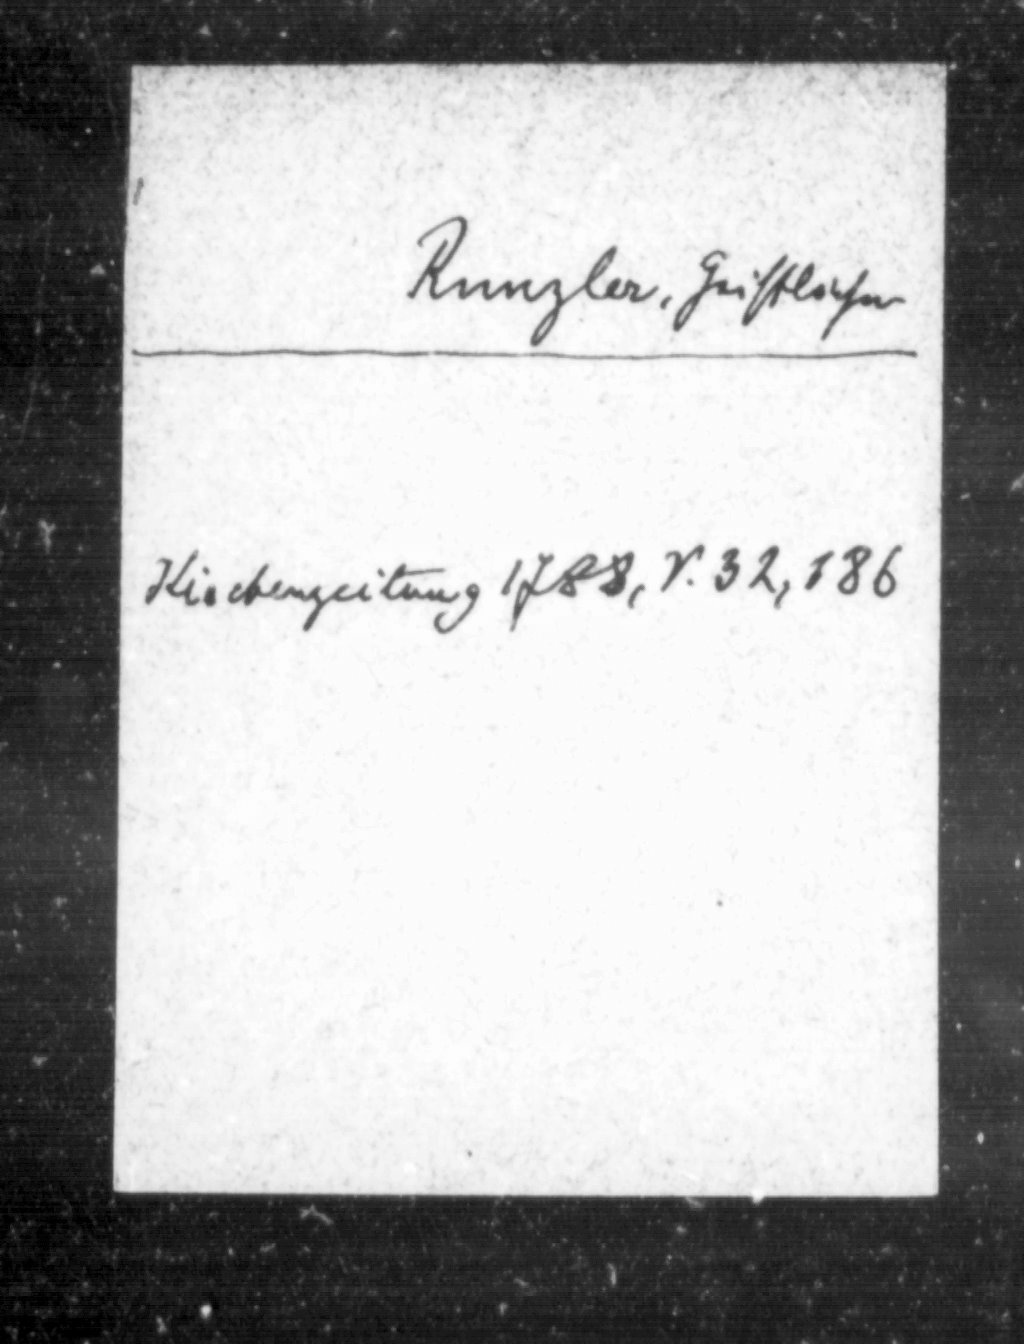 Runzler, Geistlicher
Kirchenzeitung 1788, V. 32, 186